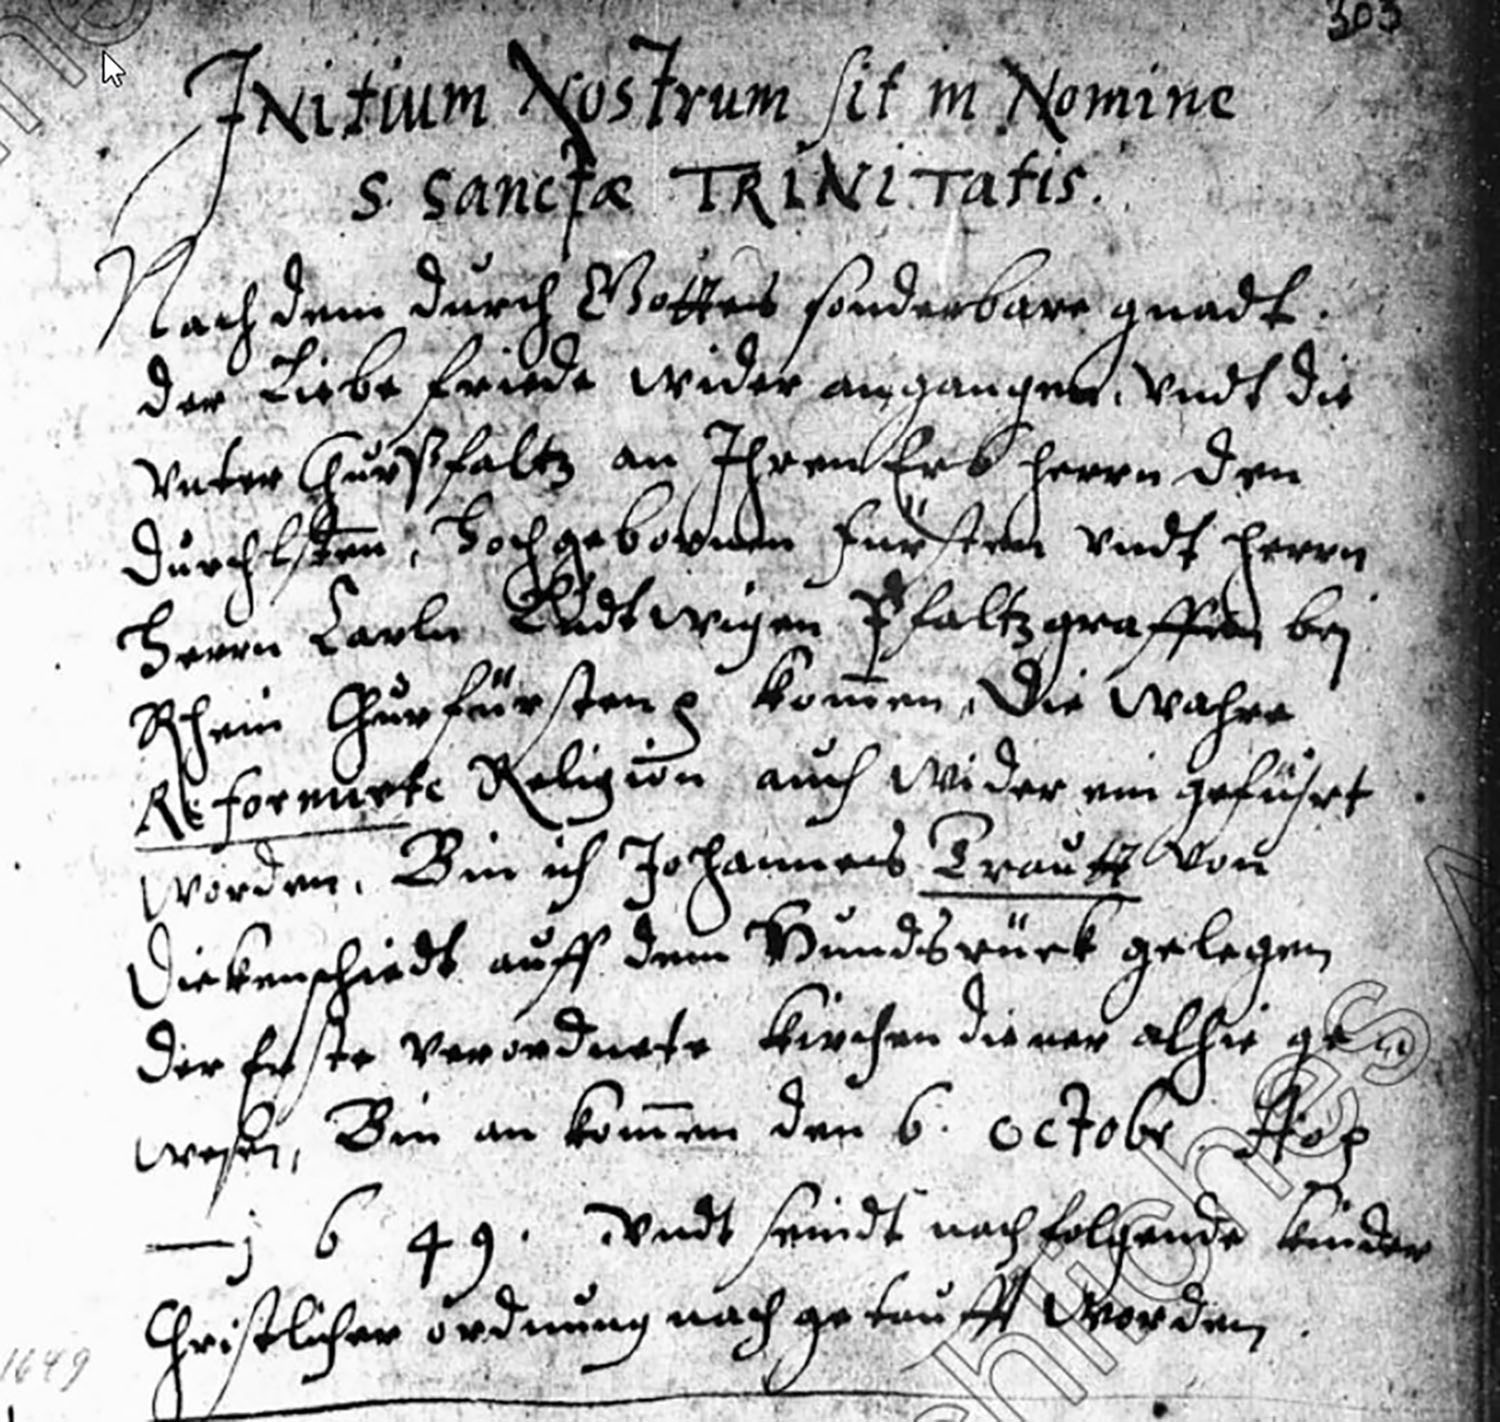 303
INitium Nostrum sit in Nomine
S. Sanctæ TRINiTatis.
Nach dem durch Gottes sonderbare gnadt.
der Liebe friede wider angangen, Vndt die
Vnter ChurPfaltz an Ihren Erb herrn den
Durchlsten, Hochgebornen Fürsten Vndt herrn
Herrn Carln Ludtwigen Pfaltzgraffen bej
Rhein Churfürsten kom̄en, Die Wahre
Reformerte Religion auch Wider ein geführt
Worden. Bin ich Johannes Trautt Von
Dickenschiedt auff dem Hundsrück gelegen
der Erste Verordnete Kirchen diener alhie ge
wesen, Bin an kom̄en den 6. octobr
j 6 4 9. Vndt seindt nachfolgende kinder
Christlicher ordnung nach getaufft Worden.
1649